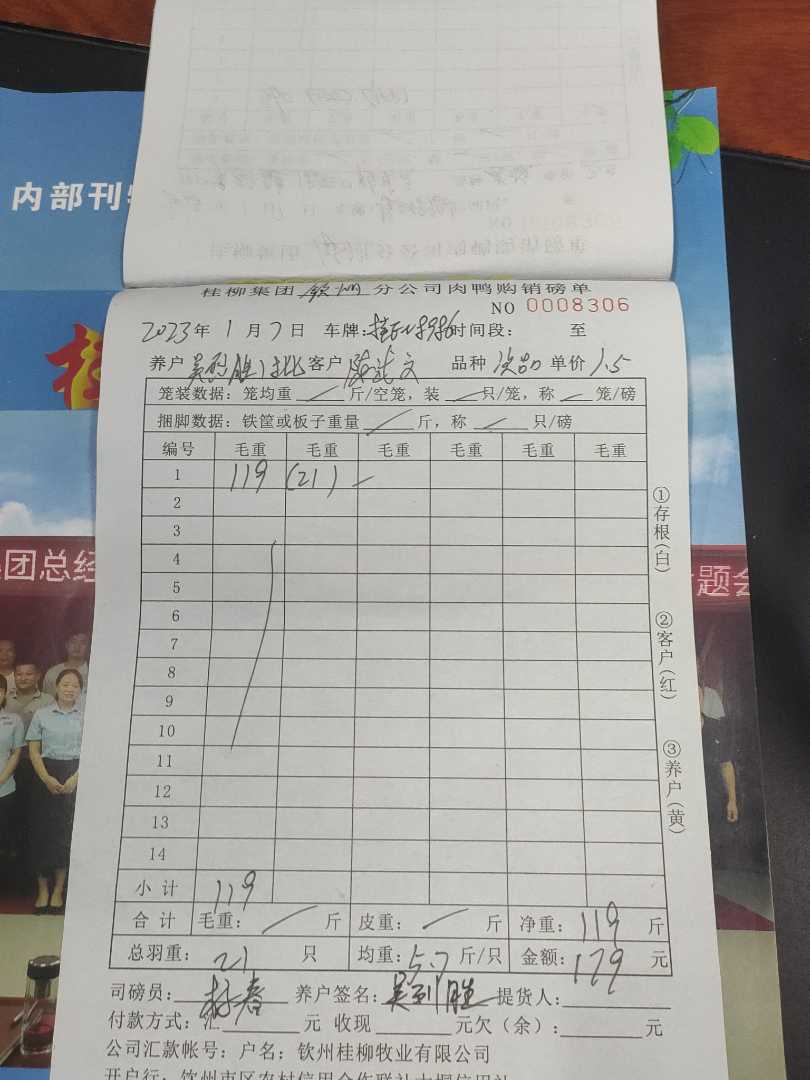 内部刊
桂柳集团 钦州 分公司肉鸭购销磅单
NO 0008306
2023年 1 月 7 日 车牌: 时间段: 至
养户 客户 陈武文 品种 次品 单价 1.5
笼装数据: 笼均重 斤/空笼, 装 只/笼, 称 笼/磅
捆脚数据: 铁筐或板子重量 斤, 称 只/磅
编号 毛重 毛重 毛重 毛重 毛重 毛重
1 119 (21)
2
3
4
5
6
7
8
9
10
11
12
13
14
小计 119
合计 毛重: 斤 皮重: 斤 净重: 119 斤
总羽重: 21 只 均重: 5.7 斤/只 金额: 179 元
司磅员: 养户签名: 提货人:
付款方式: 汇 元 收现 元欠(余): 元
公司汇款帐号: 户名: 钦州桂柳牧业有限公司
开户行: 钦州市区农村信用合作联社大垌信用社
①存根(白)
②客户(红)
③养户(黄)
团总经
题会